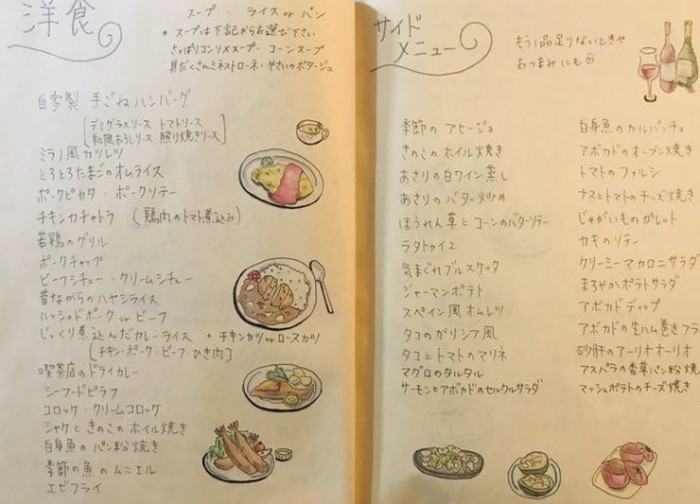 洋食
スープ ・ ライス or パン
* スープは下記からお選び下さい
さっぱりコンソメスープ ・ コーンスープ
具だくさんミネストローネ ・ やさいのポタージュ
自家製 手ごねハンバーグ
[デミグラスソース トマトソース
和風おろしソース 照り焼きソース]
ミラノ風カツレツ
とろとろたまごのオムライス
ポークピカタ ・ ポークソテー
チキンカチャトラ (鶏肉のトマト煮込み)
若鶏のグリル
ポークチャップ
ビーフシチュー ・ クリームシチュー
昔ながらのハヤシライス
ハッシュドポーク or ビーフ
じっくり煮込んだカレーライス + チキンカツ or ロースカツ
[チキン・ポーク・ビーフ・ひき肉]
喫茶店のドライカレー
シーフードピラフ
コロッケ ・ クリームコロッケ
シャケときのこのホイル焼き
白身魚のパン粉焼き
季節の魚のムニエル
エビフライ
サイドメニュー
もう1品足りないときや
おつまみにも
季節のアヒージョ
きのこのホイル焼き
あさりの白ワイン蒸し
あさりのバター炒め
ほうれん草とコーンのバターソテー
ラタトゥイユ
気まぐれブルスケッタ
ジャーマンポテト
スペイン風オムレツ
タコのガリシア風
タコとトマトのマリネ
マグロのタルタル
サーモンとアボカドのセルクルサラダ
白身魚のカルパッチョ
アボカドのオーブン焼き
トマトのファルシ
ナスとトマトのチーズ焼き
じゃがいものガレット
カキのソテー
クリーミーマカロニサラダ
まろやかポテトサラダ
アボカドディップ
アボカドの生ハム巻きフラ
砂肝のアーリオオーリオ
アスパラの香草パン粉焼
マッシュポテトのチーズ焼き